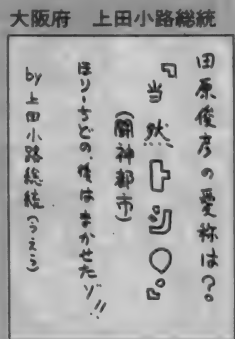 大阪府 上田小路総統
田原俊彦の愛称は?
『当然トシ○。』
(闘神都市)
ほりーちどの、後はまかせたゾ!!
by上田小路総統(うえら)